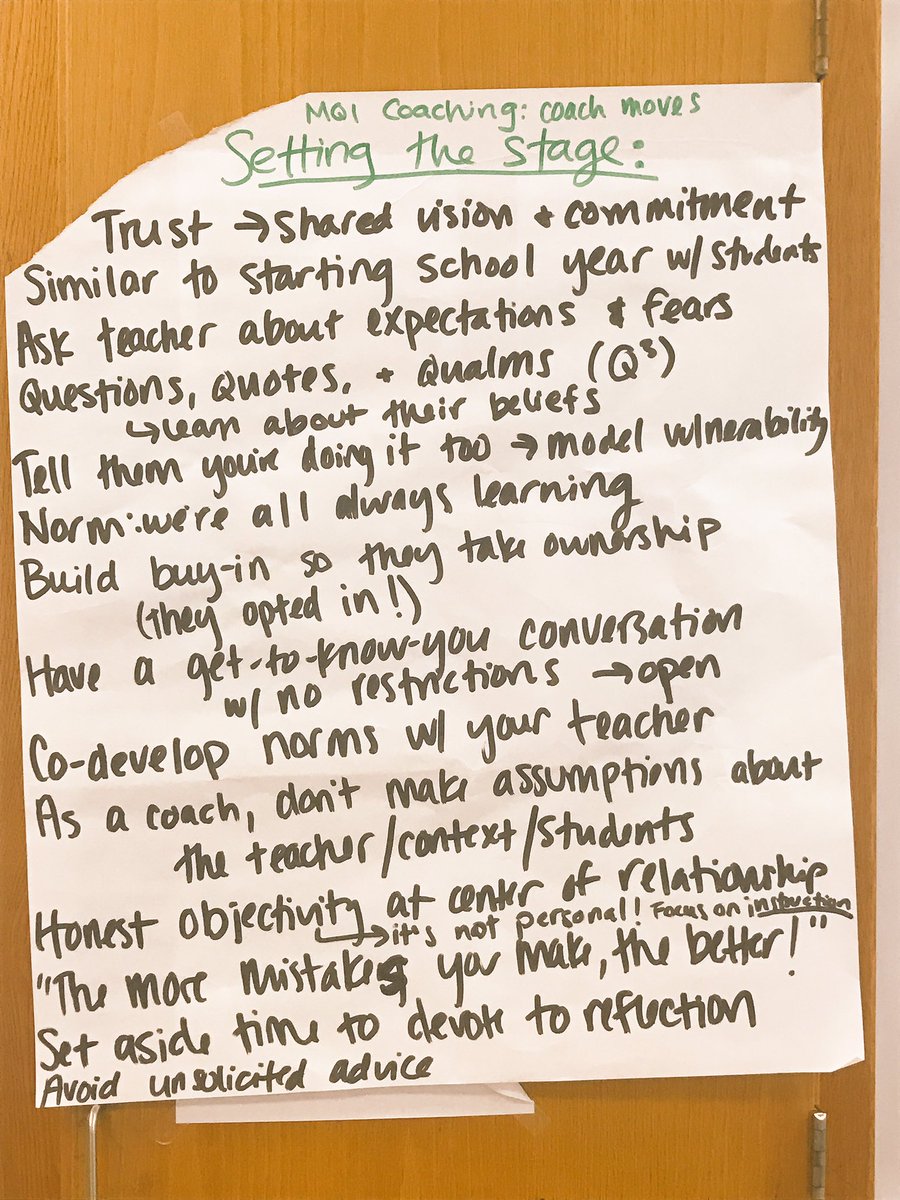 MQI Coaching: coach moves
Setting the stage:
Trust → shared vision + commitment
Similar to starting school year w/ students
Ask teacher about expectations & fears
Questions, Quotes, + Qualms (Q³)
↳ learn about their beliefs
Tell them you're doing it too → model vulnerability
Norm: we're all always learning
Build buy-in so they take ownership
(they opted in!)
Have a get-to-know-you conversation
w/ no restrictions → open
Co-develop norms w/ your teacher
As a coach, don't make assumptions about
the teacher/context/students
Honest objectivity at center of relationship
↳ it's not personal! Focus on instruction
"The more mistakes you make, the better!"
Set aside time to devote to reflection
Avoid unsolicited advice